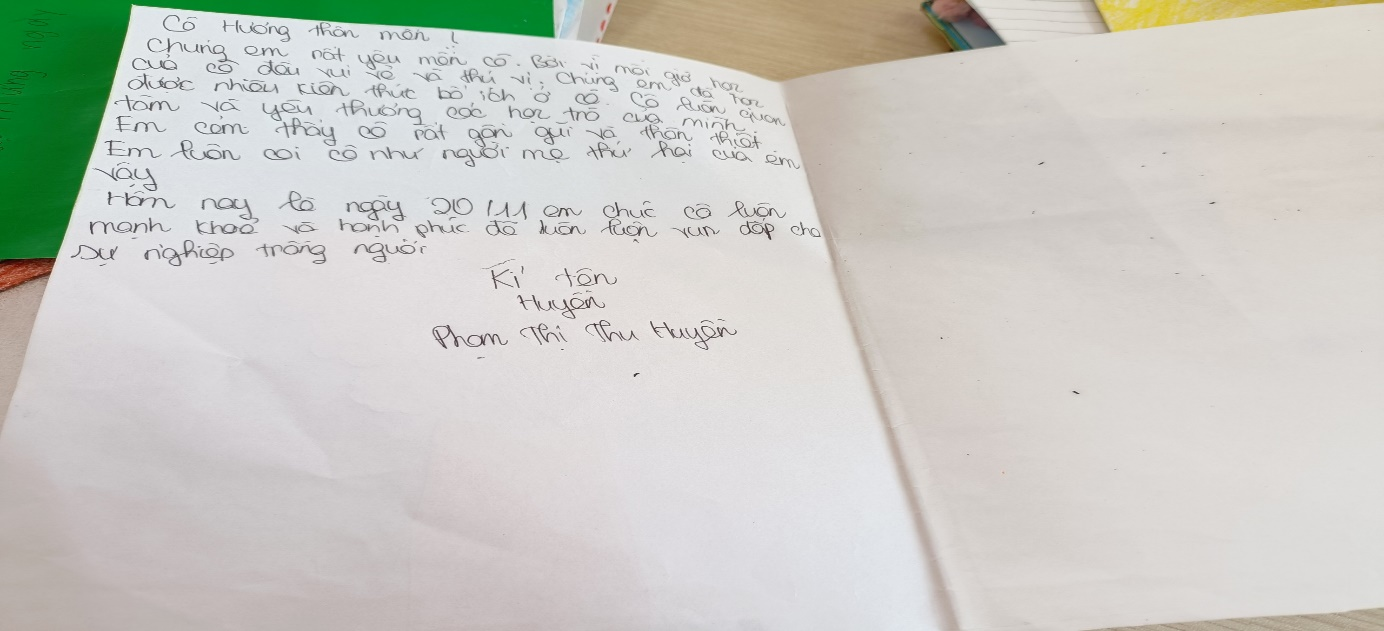 Cô Hương thân mến !
Chúng em rất yêu mến cô. Bởi vì mỗi giờ học
của cô đều vui vẻ và thú vị. Chúng em đã học
được nhiều kiến thức bổ ích ở cô. Cô luôn quan
tâm và yêu thương các học trò của mình.
Em cảm thấy cô rất gần gũi và thân thiết
Em luôn coi cô như người mẹ thứ hai của em
vậy
Hôm nay là ngày 20/11 em chúc cô luôn
mạnh khoẻ và hạnh phúc để luôn luôn vun đắp cho
sự nghiệp trồng người
Kí tên
Huyền
Phạm Thị Thu Huyền